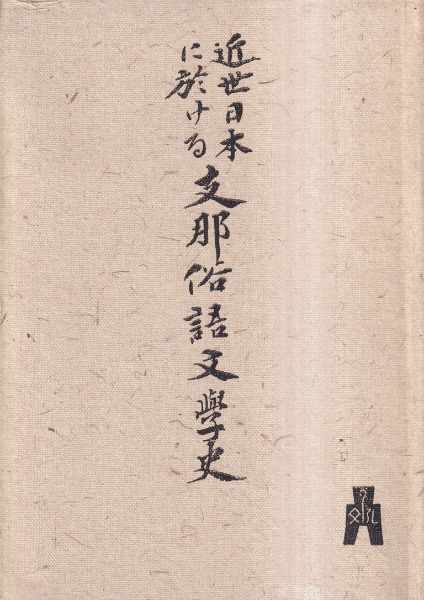 近世日本
に於ける
支那俗語文學史